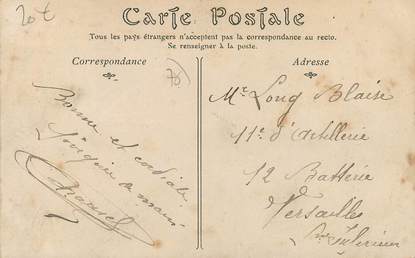 20t
Carte Postale
Tous les pays étrangers n'acceptent pas la correspondance au recto.
Se renseigner à la poste.
Correspondance
Bonne et cordiale
poignée de main
Adresse
Mr Long Blaise
11e d'Artillerie
12 Batterie
Versailles